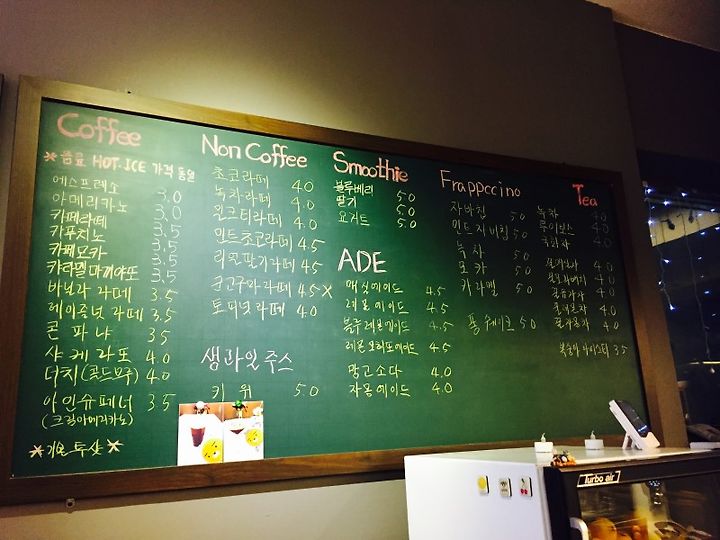 Coffee
*음료 HOT.ICE 가격 동일
에스프레소 3.0
아메리카노 3.0
카페라떼 3.5
카푸치노 3.5
카페모카 3.5
카라멜마끼아또 3.5
바닐라 라떼 3.5
헤이즐넛 라떼 3.5
콘 파냐 3.5
샤케라또 4.0
더치(콜드브루) 4.0
아인슈페너 3.5
(크림아메리카노)
*기본 투샷*
Non Coffee
초코라떼 4.0
녹차라떼 4.0
밀크티라떼 4.0
민트초코라떼 4.5
리얼딸기라떼 4.5
군고구마라떼 4.5 X
토피넛 라떼 4.0
생과일 주스
키위 5.0
Smoothie
블루베리 5.0
딸기 5.0
요거트 5.0
ADE
매실에이드 4.5
레몬에이드 4.5
블루레몬에이드 4.5
레몬모히또에이드 4.5
망고소다 4.0
자몽에이드 4.0
Frappccino
자바칩 5.0
민트자바칩 5.0
녹차 5.0
모카 5.0
카라멜 5.0
퐁 쉐이크 5.0
Tea
녹차 4.0
루이보스 4.0
국화차 4.0
4.0
4.0
4.0
4.0
4.0
복숭아 아이스티 3.5
Turbo air